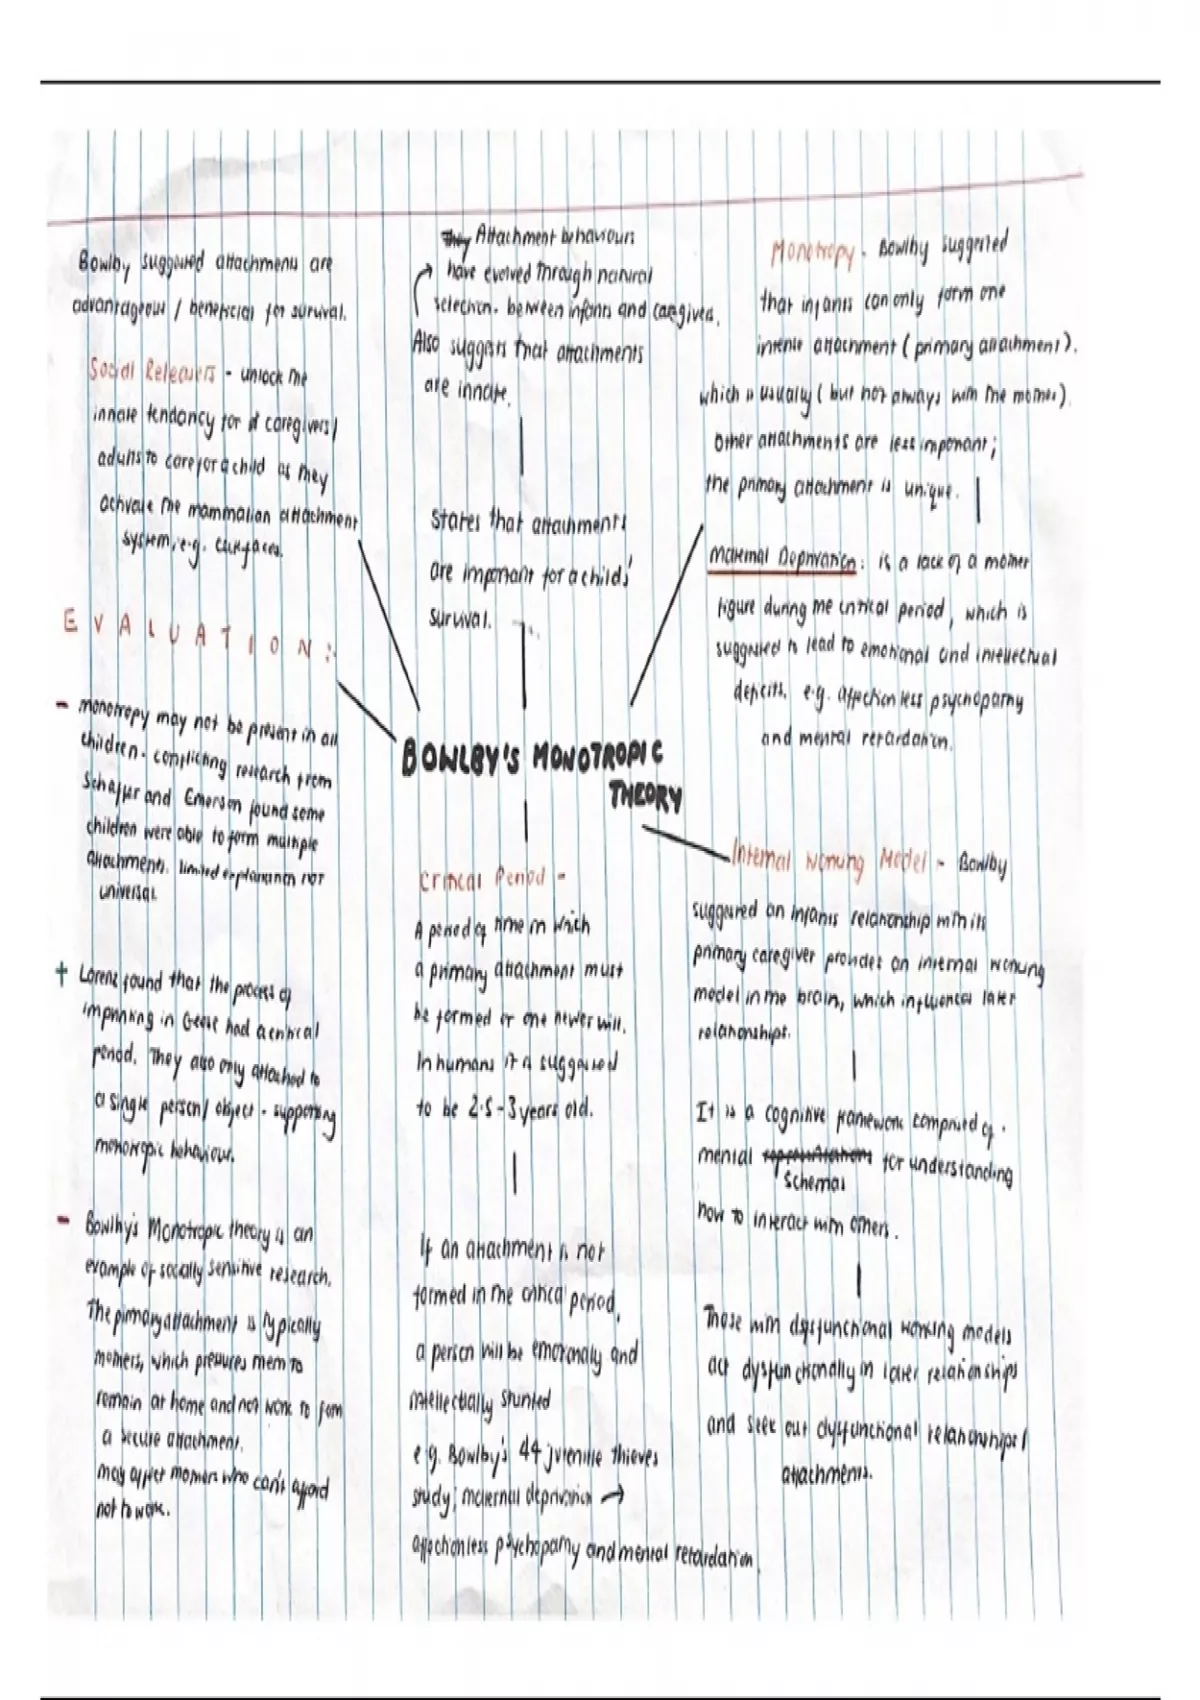 Bowlby suggested attachments are
advantageous / beneficial for survival.
Social Releasers - unlock the
innate tendancy for caregivers/
adults to care for a child as they
activate the mammalian attachment
system, e.g. cute faces.
They Attachment behaviours
have evolved through natural
selection. between infants and caregivers.
Also suggests that attachments
are innate.
States that attachments
are important for a childs'
survival.
Monotropy - Bowlby suggested
that infants can only form one
intense attachment (primary attachment).
which is usually (but not always with the mother).
Other attachments are less important;
the primary attachment is unique.
Maternal Deprivation: is a lack of a mother
figure during the critical period, which is
suggested to lead to emotional and intellectual
deficits. e.g. affectionless psychopathy
and mental retardation.
BOWLBY'S MONOTROPIC
THEORY
EVALUATION:
- monotropy may not be present in all
children. conflicting research from
Schaffer and Emerson found some
children were able to form multiple
attachments. limited explanation not
universal.
+ Lorenz found that the process of
imprinting in Geese had a critical
period. They also only attached to
a single person/ object - supporting
monotropic behaviour.
- Bowlby's Monotropic theory is an
example of socially sensitive research.
The primary attachment is typically
mothers, which pressures them to
remain at home and not work to form
a secure attachment.
may affect mothers who can't afford
not to work.
Critical Period -
A period of time in which
a primary attachment must
be formed or one never will.
In humans it is suggested
to be 2.5-3 years old.
If an attachment is not
formed in the critical period,
a person will be emotionally and
intellectually stunted
e.g. Bowlby's 44 juvenile thieves
study; maternal deprivation →
affectionless psychopathy and mental retardation.
Internal Working Model - Bowlby
suggested an infants relationship with its
primary caregiver provides an internal working
model in the brain, which influences later
relationships.
It is a cognitive framework comprised of
mental representations for understanding
schemas
how to interact with others.
Those with dysfunctional working models
act dysfunctionally in later relationships
and seek out dysfunctional relationships/
attachments.